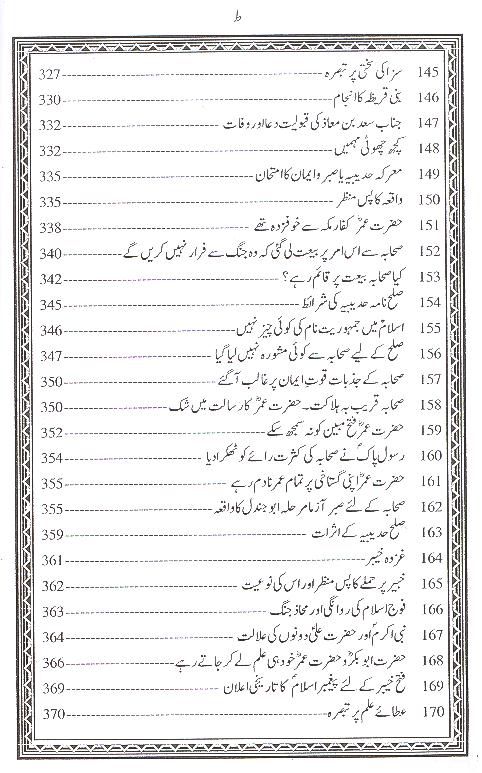 ط
145 سزا کی سختی پر تبصرہ 327
146 بنی قریظہ کا انجام 330
147 جناب سعد بن معاذ کی قبولیت دعا اور وفات 332
148 کچھ چھوٹی مہمیں 332
149 معرکہ حدیبیہ یا صبر و ایمان کا امتحان 335
150 واقعہ کا پس منظر 335
151 حضرت عمرؓ کفار مکہ سے خوفزدہ تھے 338
152 صحابہ سے اس امر پر بیعت لی گئی کہ وہ جنگ سے فرار نہیں کریں گے 340
153 کیا صحابہ بیعت پر قائم رہے؟ 342
154 صلح نامہ حدیبیہ کی شرائط 345
155 اسلام میں جمہوریت نام کی کوئی چیز نہیں 346
156 صلح کے لیے صحابہ سے کوئی مشورہ نہیں لیا گیا 347
157 صحابہ کے جذبات قوت ایمان پر غالب آ گئے 350
158 صحابہ قریب بہ ہلاکت۔ حضرت عمرؓ کا رسالت میں شک 350
159 حضرت عمرؓ فتح مبین کو نہ سمجھ سکے 352
160 رسول پاکؐ نے صحابہ کی کثرت رائے کو ٹھکرا دیا 354
161 حضرت عمرؓ اپنی گستاخی پر تمام عمر نادم رہے 355
162 صحابہ کے لئے صبر آزما مرحلہ ابو جندل کا واقعہ 355
163 صلح حدیبیہ کے اثرات 359
164 غزوہ خیبر 361
165 خیبر پر حملے کا پس منظر اور اس کی نوعیت 362
166 فوج اسلام کی روانگی اور محاذ جنگ 363
167 نبی اکرمؐ اور حضرت علیؑ دونوں کی علالت 364
168 حضرت ابوبکرؓ و حضرت عمرؓ خود ہی علم لے کر جاتے رہے 366
169 فتح خیبر کے لئے پیغمبر اسلامؐ کا تاریخی اعلان 369
170 عطائے علم پر تبصرہ 370